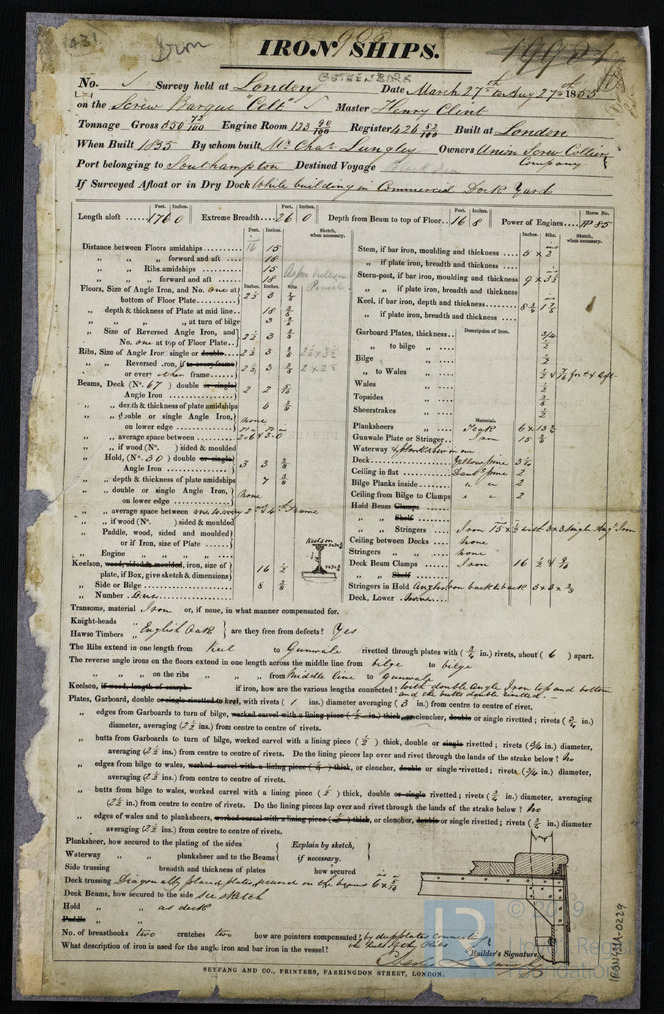 431
Iron
998
IRON SHIPS.
GOTHENBURG
No. Survey held at London Date March 27th to Aug 27th 1855
on the Screw Barque "Celt" Master Henry Clint
Tonnage Gross 850 72/100 Engine Room 123 90/100 Register 426 82/100 Built at London
When Built 1855 By whom built Mr Chas. Lungley Owners Union Screw Collier Company
Port belonging to Southampton Destined Voyage
If Surveyed Afloat or in Dry Dock While building in Commercial Dock Yard
Feet. Inches. Feet. Inches. Feet. Inches. Horse No.
Length aloft 176 0 Extreme Breadth 26 0 Depth from Beam to top of Floor 16 8 Power of Engines HP 85
Feet. Inches. Sketch, when necessary.
Distance between Floors amidships 15
„ „ „ forward and aft 18
„ „ Ribs amidships 15
„ „ „ forward and aft 18
Inches. Inches. 8ths
Floors, Size of Angle Iron, and No. one at bottom of Floor Plate 2½ 3 3/8
„ depth & thickness of Plate at mid line 18 3/8
„ „ „ „ at turn of bilge 3
„ Size of Reversed Angle Iron, and No. one at top of Floor Plate 2½ 3 3/8
Ribs, Size of Angle Iron single or double 2½ 3 3/8 2½ x 3½
„ „ Reversed iron, if to every frame or every other frame 2½ 3 3/8
Beams, Deck (No. 67) double or single Angle Iron 2 2
„ „ depth & thickness of plate amidships 6 3/8
„ „ double or single Angle Iron, on lower edge none
„ „ average space between
„ „ if wood (No. ) sided & moulded
„ Hold, (No. 30) double or single Angle Iron 3 3 3/8
„ „ depth & thickness of plate amidships 7 3/8
„ „ double or single Angle Iron, on lower edge None
„ „ average space between every 2nd & 4th frame
„ „ if wood (No. ) sided & moulded
„ Paddle, wood, sided and moulded or if Iron, size of Plate
„ Engine „ „ „
Keelson, wood, sided & moulded, iron, size of plate, if Box, give sketch & dimensions 16 ½
Keelson
„ Side or Bilge 8 3/8
„ Number One
Inches. Inches. Sketch, when necessary.
Stem, if bar iron, moulding and thickness 5 x 2
„ if plate iron, breadth and thickness
Stern-post, if bar iron, moulding and thickness 9 x 3½
„ „ if plate iron, breadth and thickness
Keel, if bar iron, depth and thickness
„ if plate iron, breadth and thickness
Description of Iron.
Garboard Plates, thickness 3/4
„ to bilge „
Bilge „ ½
„ to Wales „
Wales „ ½
Topsides „
Sheerstrakes „ ½
Materials
Planksheers „ Teak 6 x 13½
Gunwale Plate or Stringer Iron 15 3/8
Waterway & planksheer in one
Deck Yellow pine 3½
Ceiling in flat Dant pine 2
Bilge Planks inside „ „ 2
Ceiling from Bilge to Clamps „ „ 2
Hold Beam Clamps
„ „ Shelf
„ „ Stringers Iron 15 x ½ with 3 x 3 single Angl Iron
Ceiling between Decks none
Stringers „ „ none
Deck Beam Clamps Iron 16
„ „ Shelf
Stringers in Hold Angle iron back to back 3 x 3 x 3/8
Deck, Lower None
Transoms, material Iron or, if none, in what manner compensated for.
Knight-heads
Hawse Timbers „ English Oak } are they free from defects? Yes
The Ribs extend in one length from Keel to Gunwale rivetted through plates with ( 3/4 in.) rivets, about ( 6 ) apart.
The reverse angle irons on the floors extend in one length across the middle line from bilge to bilge
„ „ „ on the ribs „ „ from Middle line to gunwale
Keelson, if wood, length of scarph if iron, how are the various lengths connected? with double Angle Iron top and bottom and the butts double riveted.
Plates, Garboard, double or single rivetted to keel, with rivets ( 1 ins.) diameter averaging ( 3 in.) from centre to centre of rivet.
„ edges from Garboards to turn of bilge, worked carvel with a lining piece ( ½ in.) thick, or clencher, double or single rivetted; rivets ( 3/4 in.) diameter, averaging (2½ ins.) from centre to centre of rivets.
„ butts from Garboards to turn of bilge, worked carvel with a lining piece ( ½ ) thick, double or single rivetted; rivets (3/4 in.) diameter, averaging (2½ ins.) from centre to centre of rivets. Do the lining pieces lap over and rivet through the lands of the strake below? No
„ edges from bilge to wales, worked carvel with a lining piece ( ) thick, or clencher, double or single rivetted; rivets (3/4 in.) diameter, averaging (2½ ins.) from centre to centre of rivets.
„ butts from bilge to wales, worked carvel with a lining piece ( ½ ) thick, double or single rivetted; rivets ( 3/4 in.) diameter, averaging (2½ in.) from centre to centre of rivets. Do the lining pieces lap over and rivet through the lands of the strake below? No
„ edges of wales and to planksheers, worked carvel with a lining piece ( ) thick, or clencher, double or single rivetted; rivets ( 3/4 in.) diameter averaging (2½ ins.) from centre to centre of rivets.
Planksheer, how secured to the plating of the sides { Explain by sketch, if necessary. }
Waterway „ „ planksheer and to the Beams
Side trussing breadth and thickness of plates how secured
Deck trussing Diagonally placed plates, secured on the beams
Deck Beams, how secured to the side see sketch
Hold „ „ as deck
Paddle „ „
No. of breasthooks two crutches two how are pointers compensated? by deep plates connecting
What description of iron is used for the angle iron and bar iron in the vessel?
Builder's Signature, Charles Lungley
SEYFANG AND CO., PRINTERS, FARRINGDON STREET, LONDON.
IRON431A-0229
LR
© 2019
Lloyd's Register
Foundation